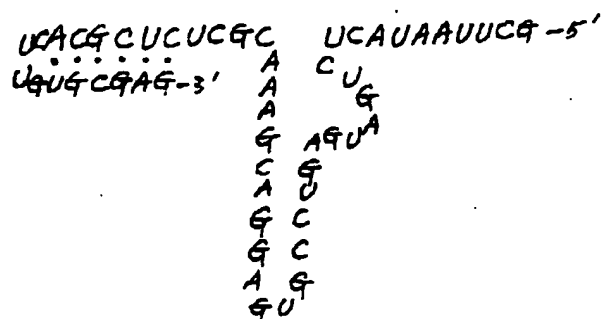 UCACGCUCUCGC UCAUAAUUCG-5'
UGUGCGAG-3' A C
A U
A G
G A
C AGU
A G
G U
G C
A C
GU G